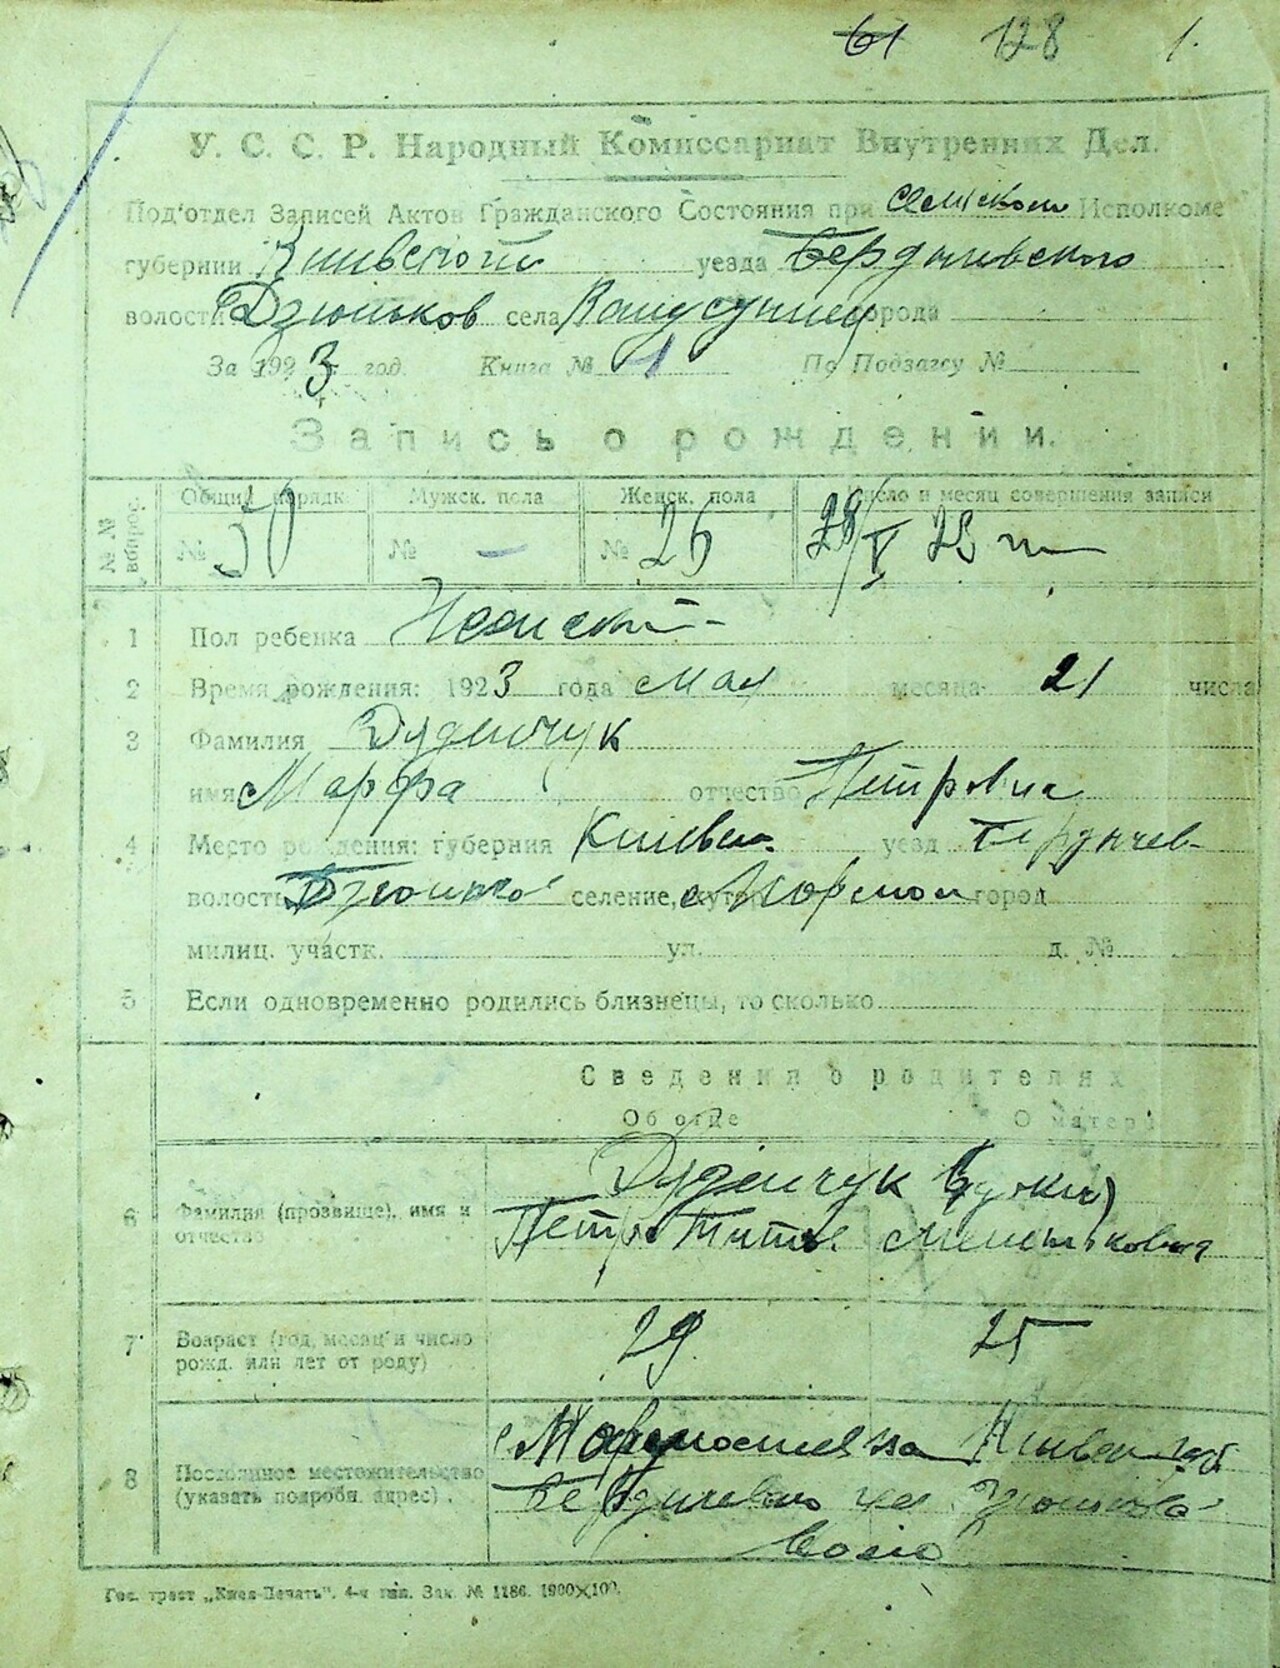 61 128 1.
У. С. С. Р. Народный Комиссариат Внутренних Дел.
Под'отдел Записей Актов Гражданского Состояния при Исполкоме
губернии Киивской уезда Бердычивского
волости Дзюньков села города
За 1923 год. Книга № 1 По Подзагсу №
Запись о рождении.
№№ вопрос. Общий порядк. Мужск. пола Женск. пола Число и месяц совершения записи
№ 50 № — № 26 28/V 23
1 Пол ребенка Женский
2 Время рождения: 1923 года мая месяца 21 числа
3 Фамилия Дуденчук
имя Марфа отчество Петровна
4 Место рождения: губерния Киивск. уезд Бердичев-
волость селение, хутор город
милиц. участк. ул. д. №
5 Если одновременно родились близнецы, то сколько
Сведения о родителях
Об отце О матери
6 Фамилия (прозвище), имя и отчество Дуденчук
Петро Титов.
7 Возраст (год, месяц и число рожд. или лет от роду) 29 25
8 Постоянное местожительство (указать подробн. адрес). губ.
Гос. трест „Киев-Печать“. 4-я тип. Зак. № 1186. 1900×100.